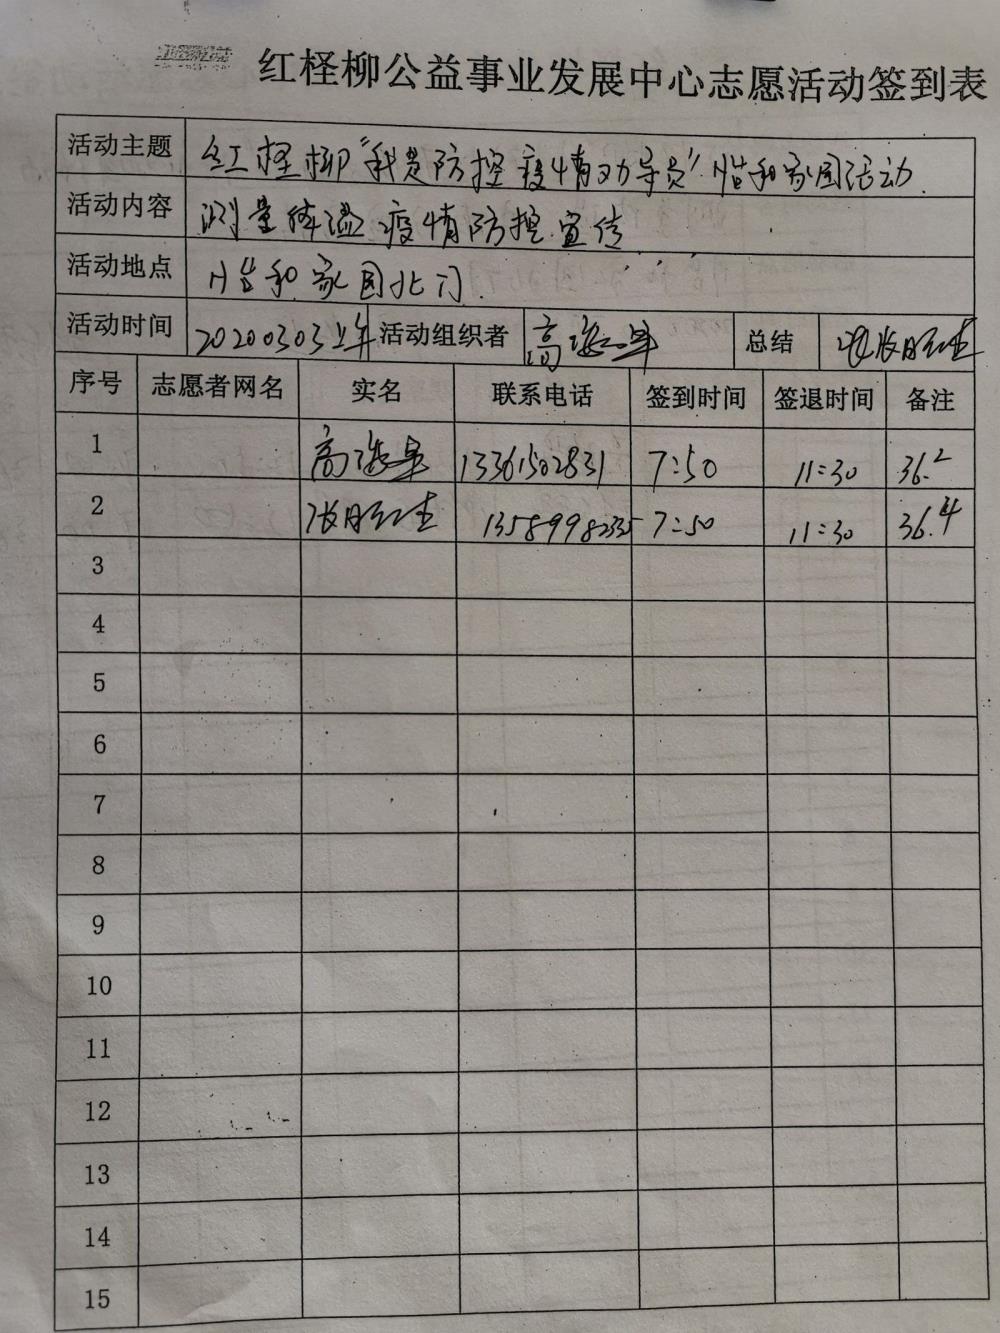 红柽柳公益事业发展中心志愿活动签到表
活动主题 红柽柳"我是防控疫情劝导员"恺和家园活动
活动内容 测量体温 疫情防控宣传
活动地点 恺和家园北门
活动时间 20200303上午 活动组织者 高 总结
序号 志愿者网名 实名 联系电话 签到时间 签退时间 备注
1 高 13361502831 7:50 11:30 36.2
2 7:50 11:30 36.4
3
4
5
6
7
8
9
10
11
12
13
14
15